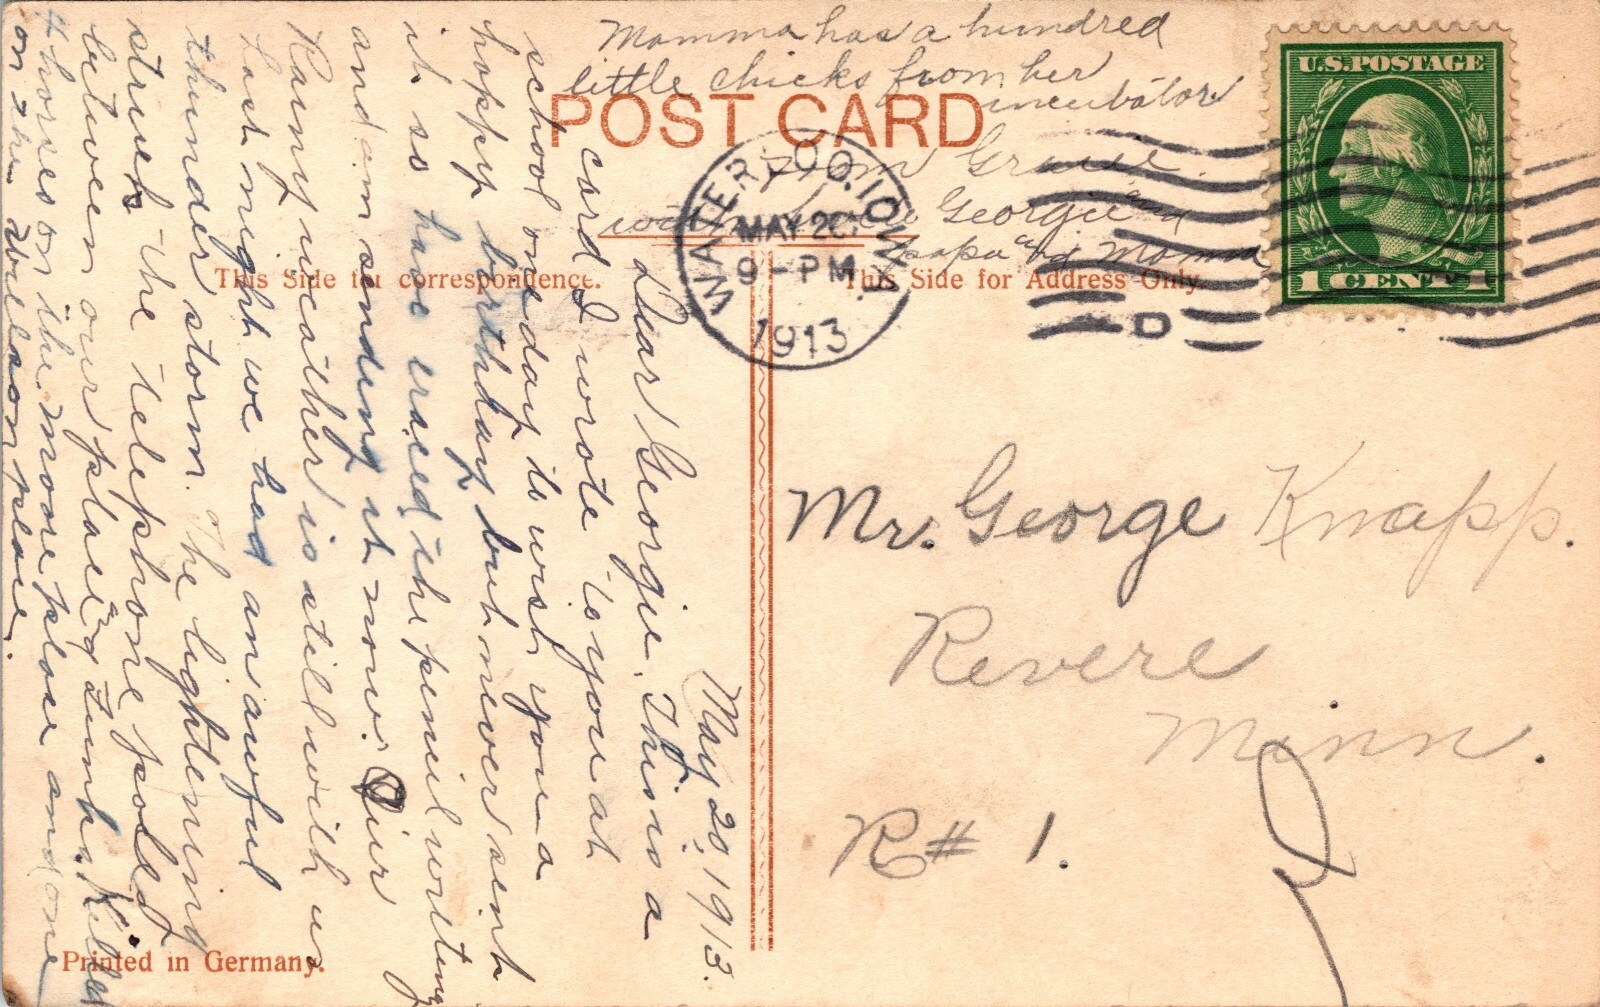 POST CARD
This Side for correspondence.
This Side for Address Only.
U.S.POSTAGE
1 CENT 1
WATERLOO. IOWA.
MAY 20
9-PM
1913
D
May 20, 1913.
Dear Georgie. This is a
card I wrote to you at
school one day to wish you a
happy birthday but never sent
it so have erased the pencil writing
and am sending it now. Our
Rainy weather is still with us
Last night we had an awful
thunder storm. The lightening
struck the telephone poles
between our place and Zumhs. Killed
4 horses on the Moore place and one
on the Wilson place.
Momma has a hundred
little chicks from her
incubator
From Grace.
with love Georgie and
papa and Momma
Mr. George Knapp.
Revere
Minn.
R# 1.
Printed in Germany.